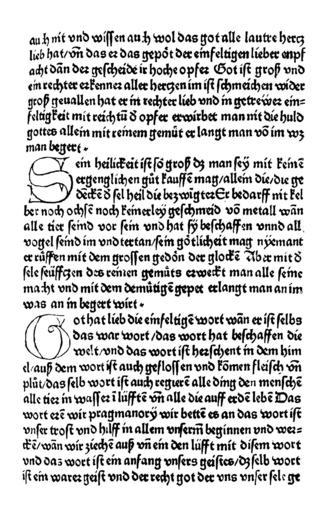 auch nit vnd wissen auch wol das got alle lautre hercz
lieb hat/ vñ das er das gepöt der einfeltigen lieber enpf
acht dañ der gescheide ir hoche opfer Got ist groß vnd
ein rechter erkenner aller herczen im ist schmeichen wider
groß geuallen hat er in rechter lieb vnd in getrewer ein=
feltigkeit mit reichtū ď opfer erwirbet man nit die huld
gottes allein mit reinem gemüt er langt man võ im wz
man begert •
Sein heilickeit ist so groß dz man sey mit keinē
zergenglichen gůt kauffen mag/allein die/die ge
deckē ď sel heil die bezwigter Er bedarff nit kel
ber noch ochsen noch keinerley geschmeid võ metall wañ
alle tier seind vor sein vnd hat sy beschaffen vnnd all
vogel seind im vndtertan/sein götlicheit mag nyemant
er rüffen mit dem grossen gedön der glockē Aber mit ď
sele seüffczen des reinen gemüts erweckt man alle seine
macht vnd mit dem demütigen gepet erlangt man an im
was an in begert wirt •
Got hat lieb die einfeltigē wort wañ er ist selbs
das war wort/das wort hat beschaffen die
welt/vnd das wort ist herschent in dem him
el/auß dem wort ist auch geflossen vnd kömen fleisch vñ
plůt/das selb wort ist auch regierē alle ding den menschē
alle tier in wasser ī lüfftē vñ alle die auff erdē lebē Das
wort erē wir pragmanory wir bettē es an das wort ist
vnser trost vnd hilff in allem vnserm beginnen vnd wer=
ckē/wañ wir ziechē auß vñ ein den lüfft mit disem wort
vnd das wort ist ein anfang vnsers geistes/dz selb wort
ist ein warer geist vnd der recht got der vns vnser sele ge